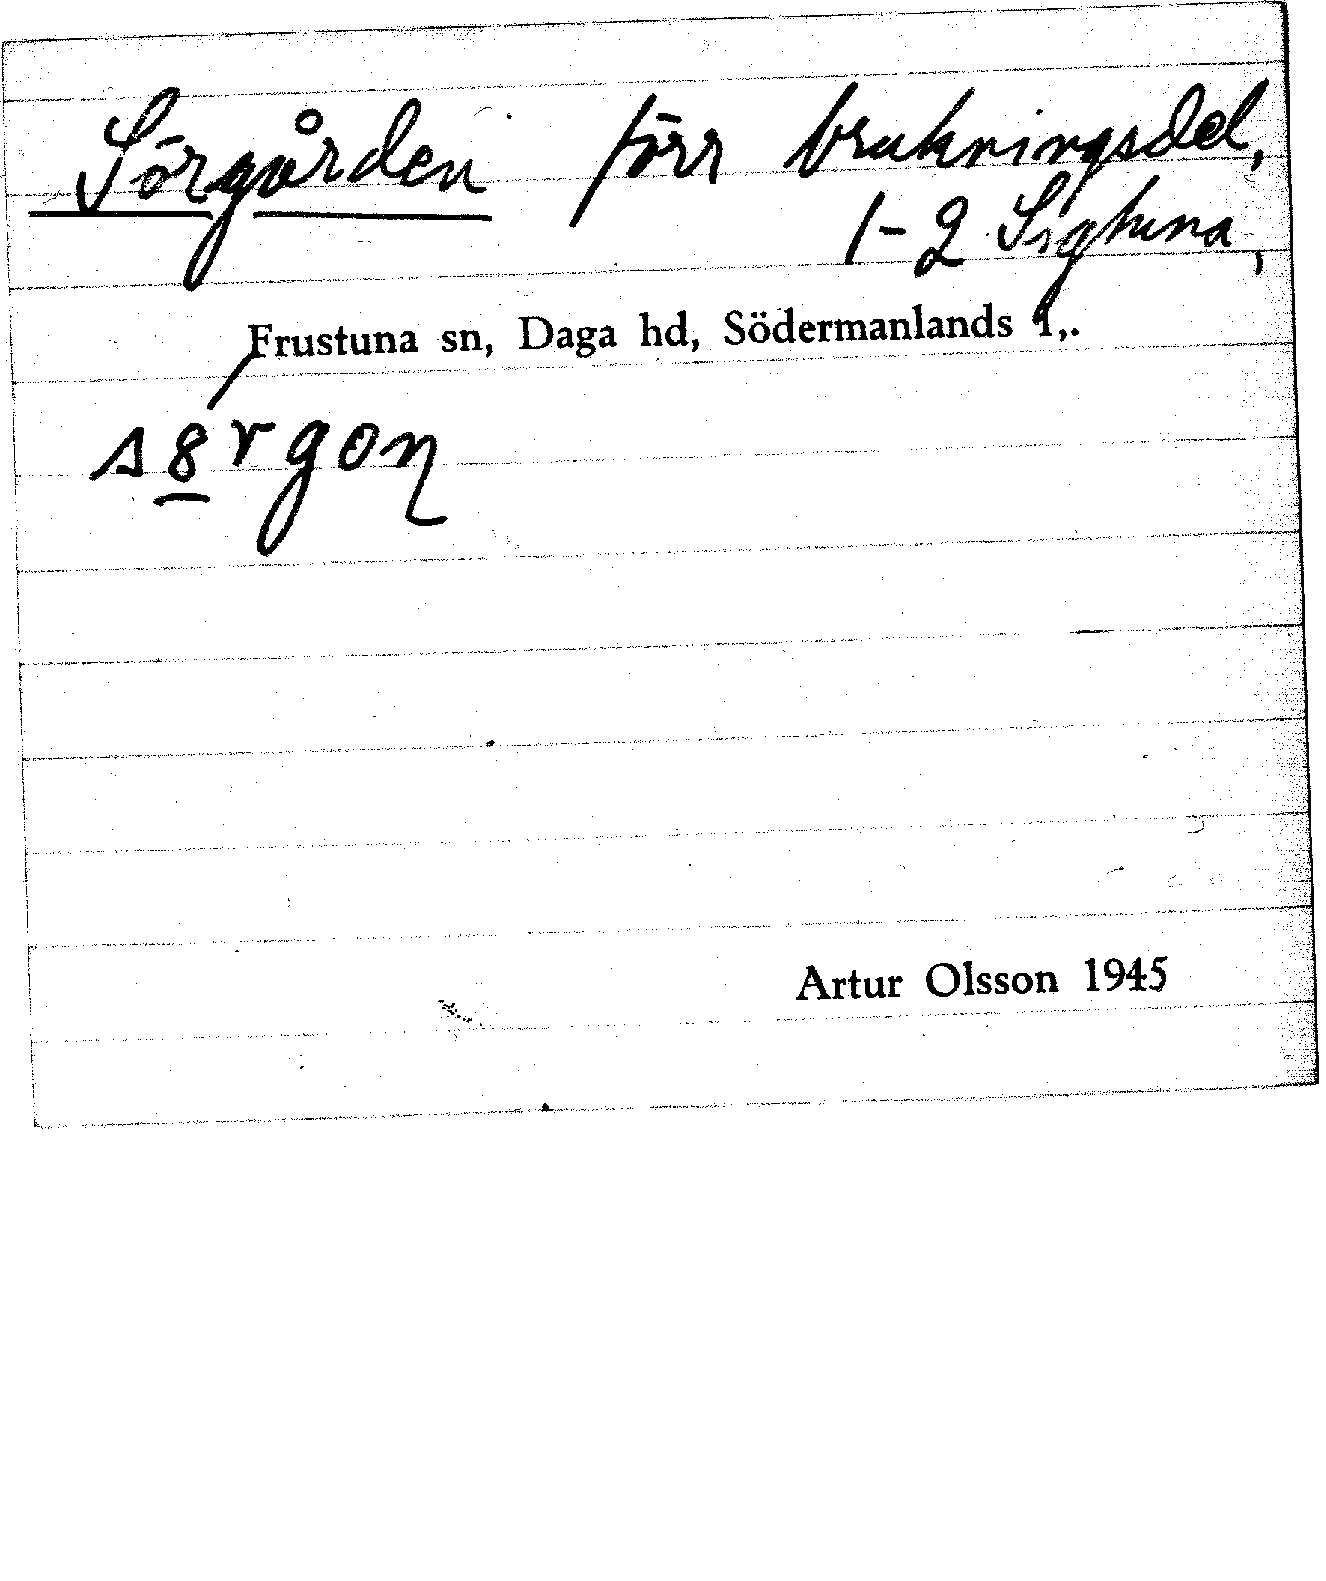 Sörgården förr brukningsdel,
1-2 Sigtuna,
Frustuna sn, Daga hd, Södermanlands l,.
s8rgoɳ
Artur Olsson 1945